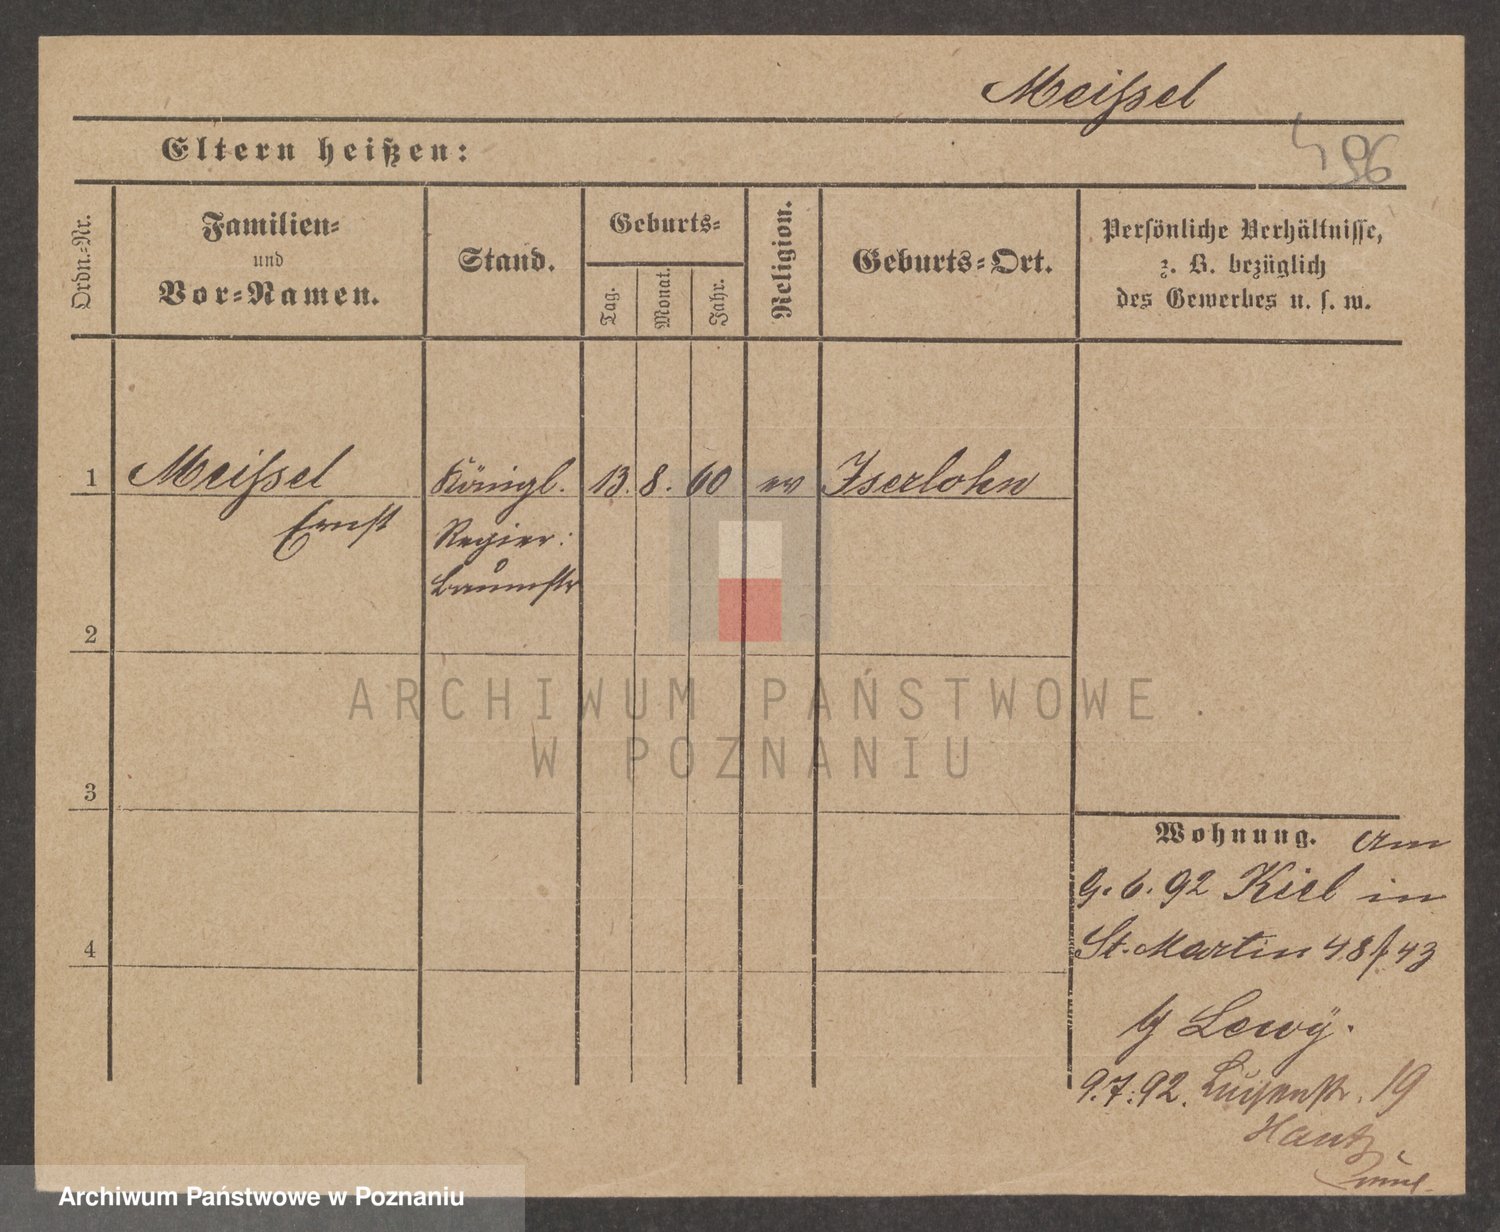 Meißel
496
Eltern heißen:
Ordn.-Nr.
Familien-
und
Vor-Namen.
Stand.
Geburts-
Tag.
Monat.
Jahr.
Religion.
Geburts-Ort.
Persönliche Verhältnisse,
z. B. bezüglich
des Gewerbes u. s. w.
1 Meißel Königl. 13. 8. 60 ev Iserlohn
Ernst Regier:
baumstr
2
3
4
ARCHIWUM PAŃSTWOWE
W POZNANIU
Wohnung. Am
9. 6. 92 Kiel in
St. Martin 48/43
b/ Lewÿ.
9.7.92. Luisenstr. 19
Archiwum Państwowe w Poznaniu